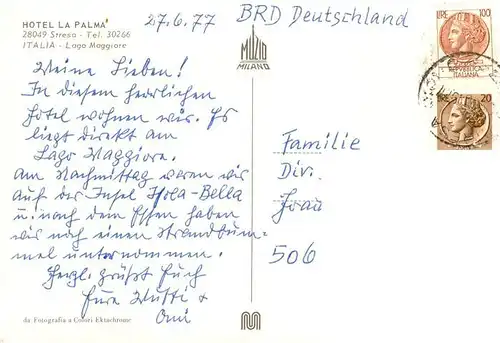 HOTEL LA PALMA
28049 Stresa - Tel. 30266
ITALIA - Lago Maggiore
27.6.77
BRD Deutschland
MUZIO
MILANO
LIRE 100
REPUBBLICA
ITALIANA
LIRE 20
Meine Lieben!
In diesem herrlichen
Hotel wohnen wir. Es
liegt direkt am
Lago Maggiore.
Am Nachmittag waren wir
auf der Insel Isola-Bella
u. nach dem Essen haben
wir noch einen Strandbum-
mel unternommen.
Herzl. grüßt Euch
Eure Mutti &
Omi
Familie
Div.
Frau
506
da Fotografia a Colori Ektachrome